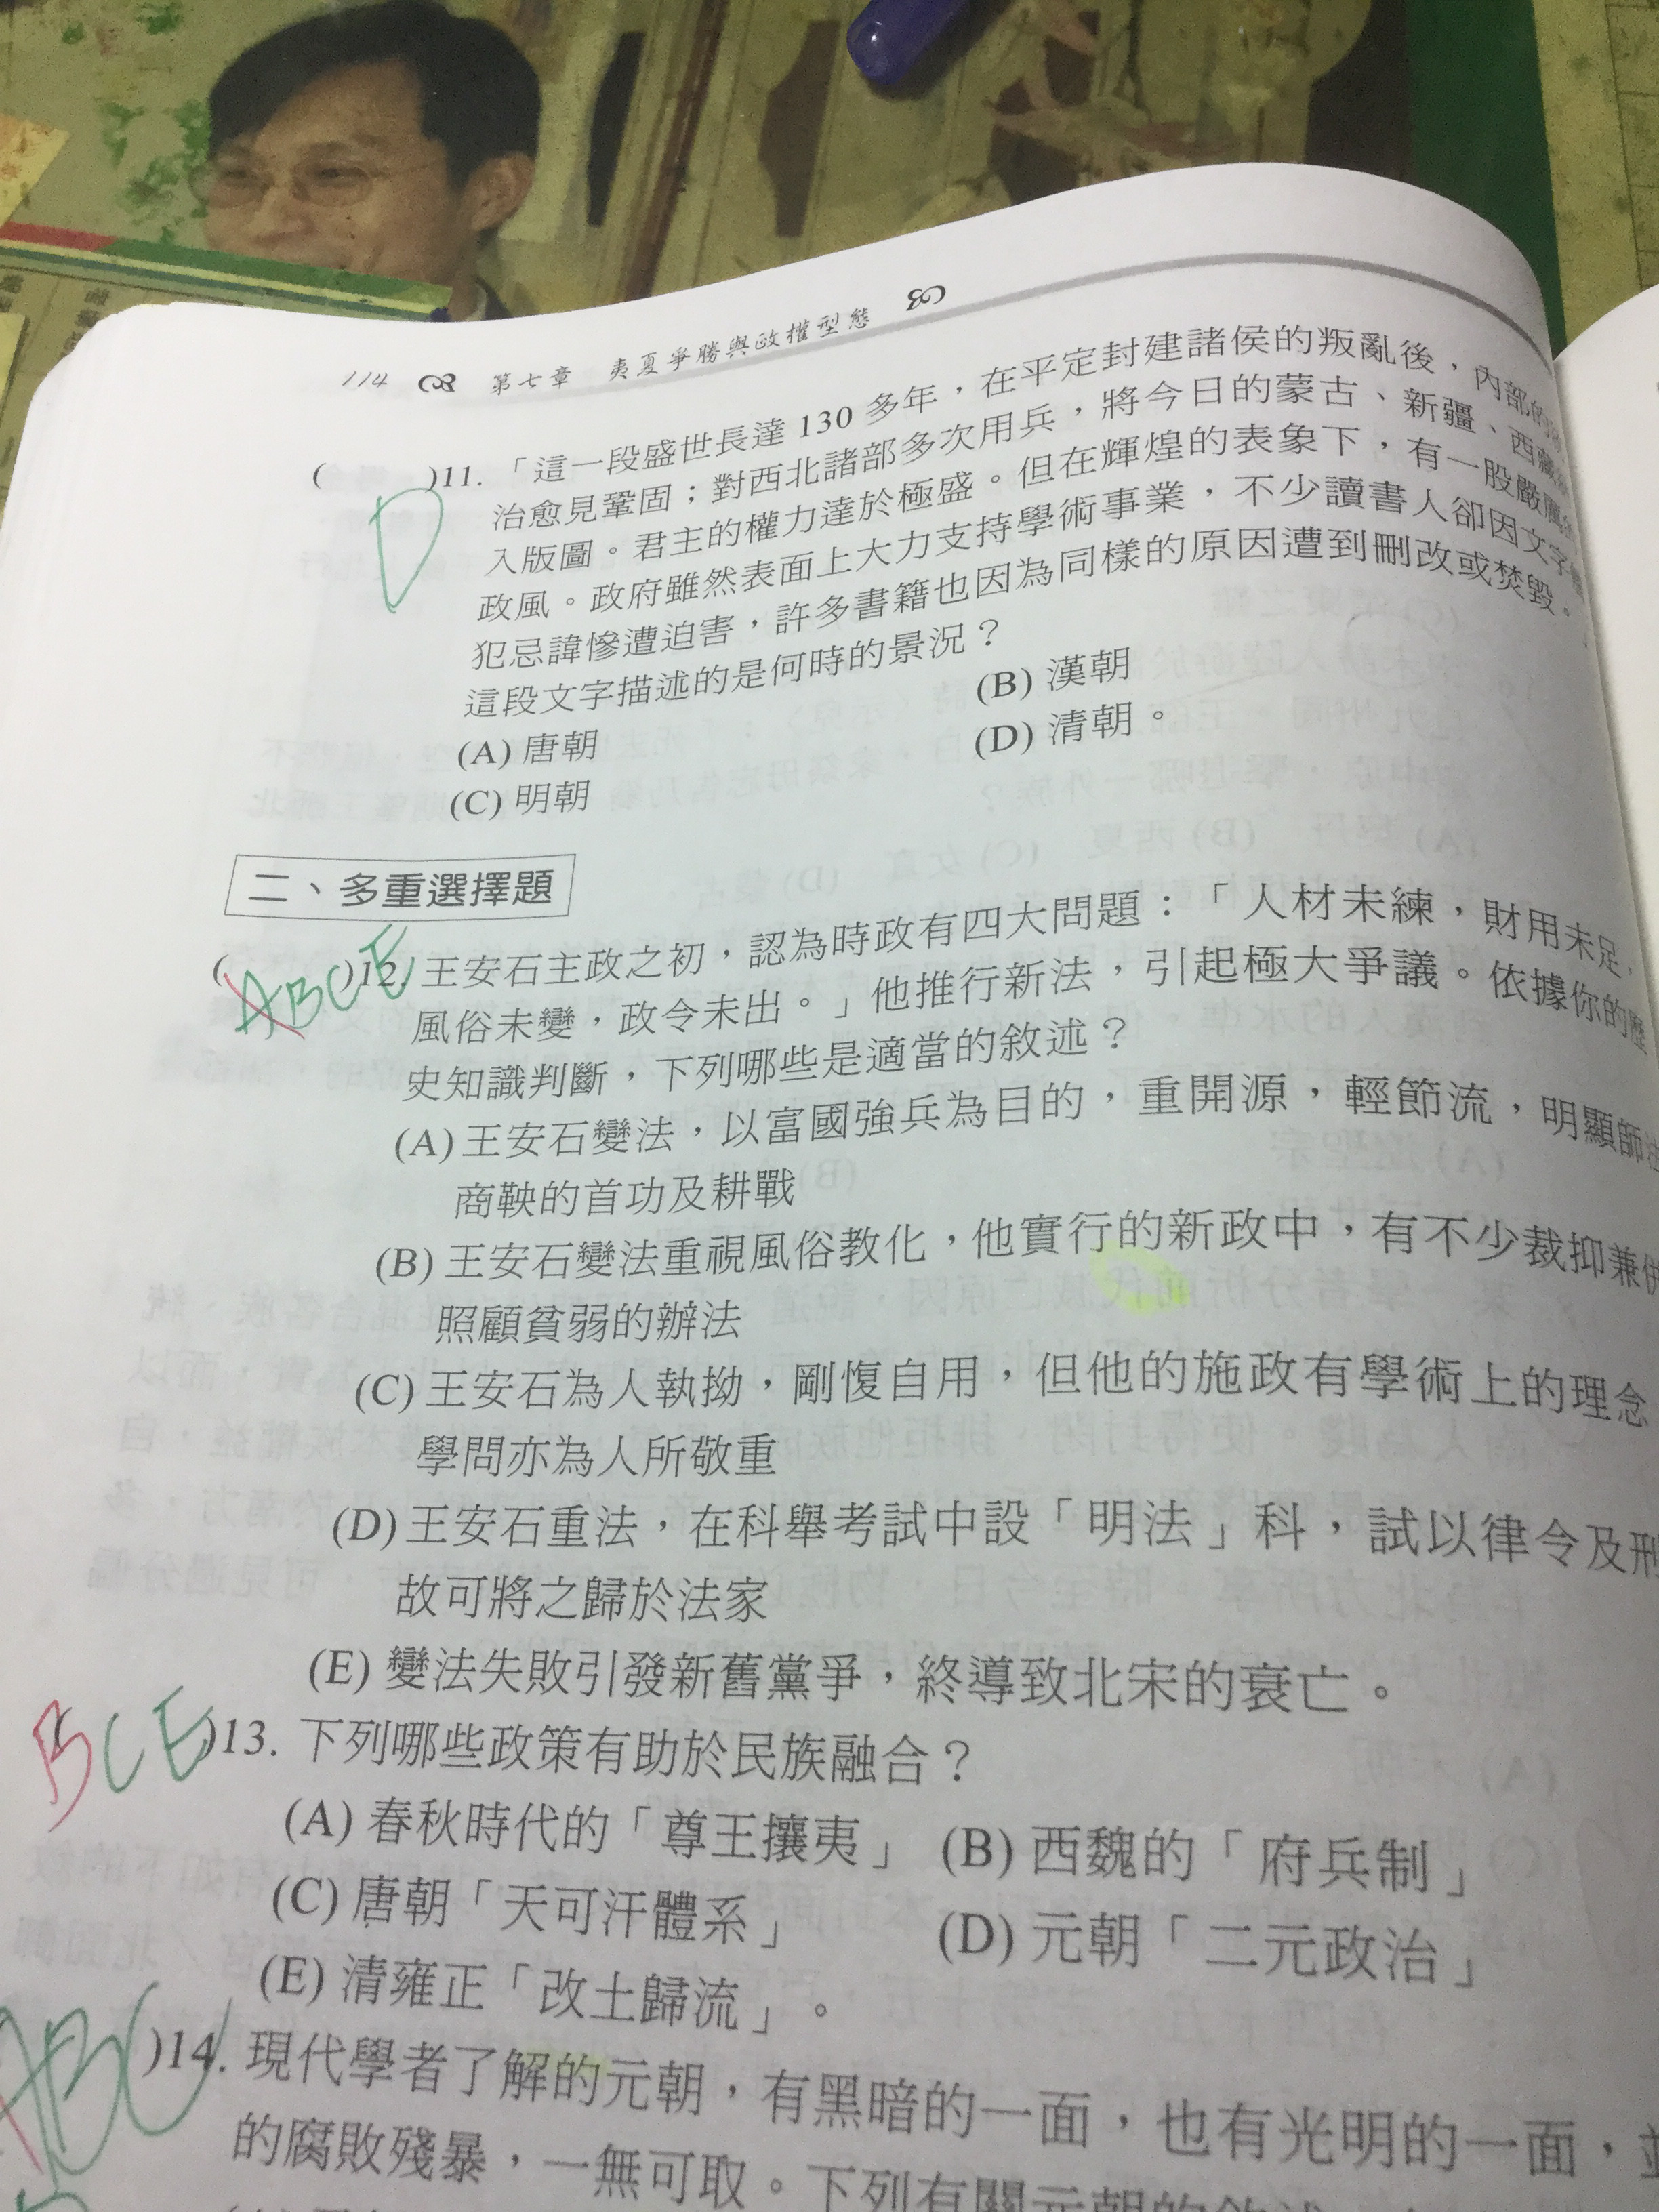 114 第七章 夷夏爭勝與政權型態
( )11. 「這一段盛世長達 130 多年，在平定封建諸侯的叛亂後，內部的
治愈見鞏固；對西北諸部多次用兵，將今日的蒙古、新疆、西藏
入版圖。君主的權力達於極盛。但在輝煌的表象下，有一股嚴厲
政風。政府雖然表面上大力支持學術事業，不少讀書人卻因文字
犯忌諱慘遭迫害，許多書籍也因為同樣的原因遭到刪改或焚毀。
D
這段文字描述的是何時的景況？
(A) 唐朝 (B) 漢朝
(C) 明朝 (D) 清朝。
二、多重選擇題
ABCE
( )12. 王安石主政之初，認為時政有四大問題：「人材未練，財用未足，
風俗未變，政令未出。」他推行新法，引起極大爭議。依據你的歷
史知識判斷，下列哪些是適當的敘述？
(A) 王安石變法，以富國強兵為目的，重開源，輕節流，明顯師法
商鞅的首功及耕戰
(B) 王安石變法重視風俗教化，他實行的新政中，有不少裁抑兼併
照顧貧弱的辦法
(C) 王安石為人執拗，剛愎自用，但他的施政有學術上的理念
學問亦為人所敬重
(D) 王安石重法，在科舉考試中設「明法」科，試以律令及刑
故可將之歸於法家
(E) 變法失敗引發新舊黨爭，終導致北宋的衰亡。
BCE
( )13. 下列哪些政策有助於民族融合？
(A) 春秋時代的「尊王攘夷」 (B) 西魏的「府兵制」
(C) 唐朝「天可汗體系」 (D) 元朝「二元政治」
(E) 清雍正「改土歸流」。
ABC
)14. 現代學者了解的元朝，有黑暗的一面，也有光明的一面，並
的腐敗殘暴，一無可取。下列有關元朝的敘述